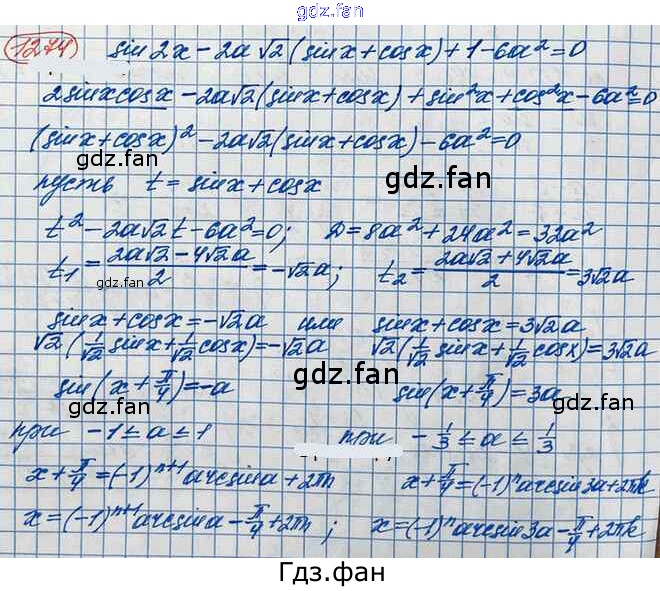 gdz.fan
1274) sin 2x - 2a√2 (sinx + cosx) + 1 - 6a² = 0
gdz.fan
2sinxcosx - 2a√2(sinx + cosx) + sin²x + cos²x - 6a² = 0
(sinx + cosx)² - 2a√2(sinx + cosx) - 6a² = 0
gdz.fan
пусть t = sinx + cosx
gdz.fan
t² - 2a√2 t - 6a² = 0; D = 8a² + 24a² = 32a²
t₁ = (2a√2 - 4√2a)/2 = -√2a; t₂ = (2a√2 + 4√2a)/2 = 3√2a
gdz.fan
gdz.fan
sinx + cosx = -√2a или sinx + cosx = 3√2a
√2 (1/√2 sinx + 1/√2 cosx) = -√2a √2 (1/√2 sinx + 1/√2 cosx) = 3√2a
gdz.fan
sin(x + π/4) = -a sin(x + π/4) = 3a
gdz.fan
при -1 ≤ a ≤ 1 при -1/3 ≤ a ≤ 1/3
x + π/4 = (-1)ⁿ⁺¹ arcsin a + 2πn x + π/4 = (-1)ⁿ arcsin 3a + 2πk
gdz.fan
x = (-1)ⁿ⁺¹ arcsin a - π/4 + 2πn; x = (-1)ⁿ arcsin 3a - π/4 + 2πk
gdz.fan
Гдз.фан